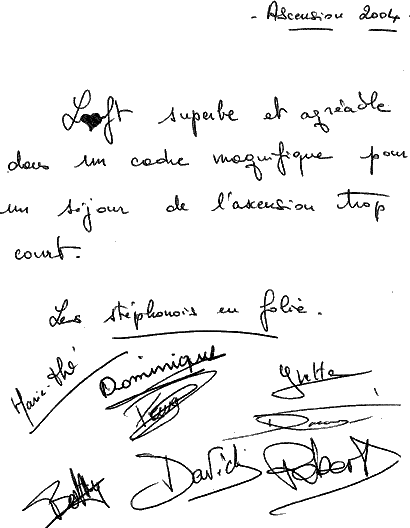 - Ascension 2004 -
Loft superbe et agréable
dans un cadre magnifique pour
un séjour de l'ascension trop
court.
Les stéphanois en folie.
Marie-thé Dominique Yvette
David Robert